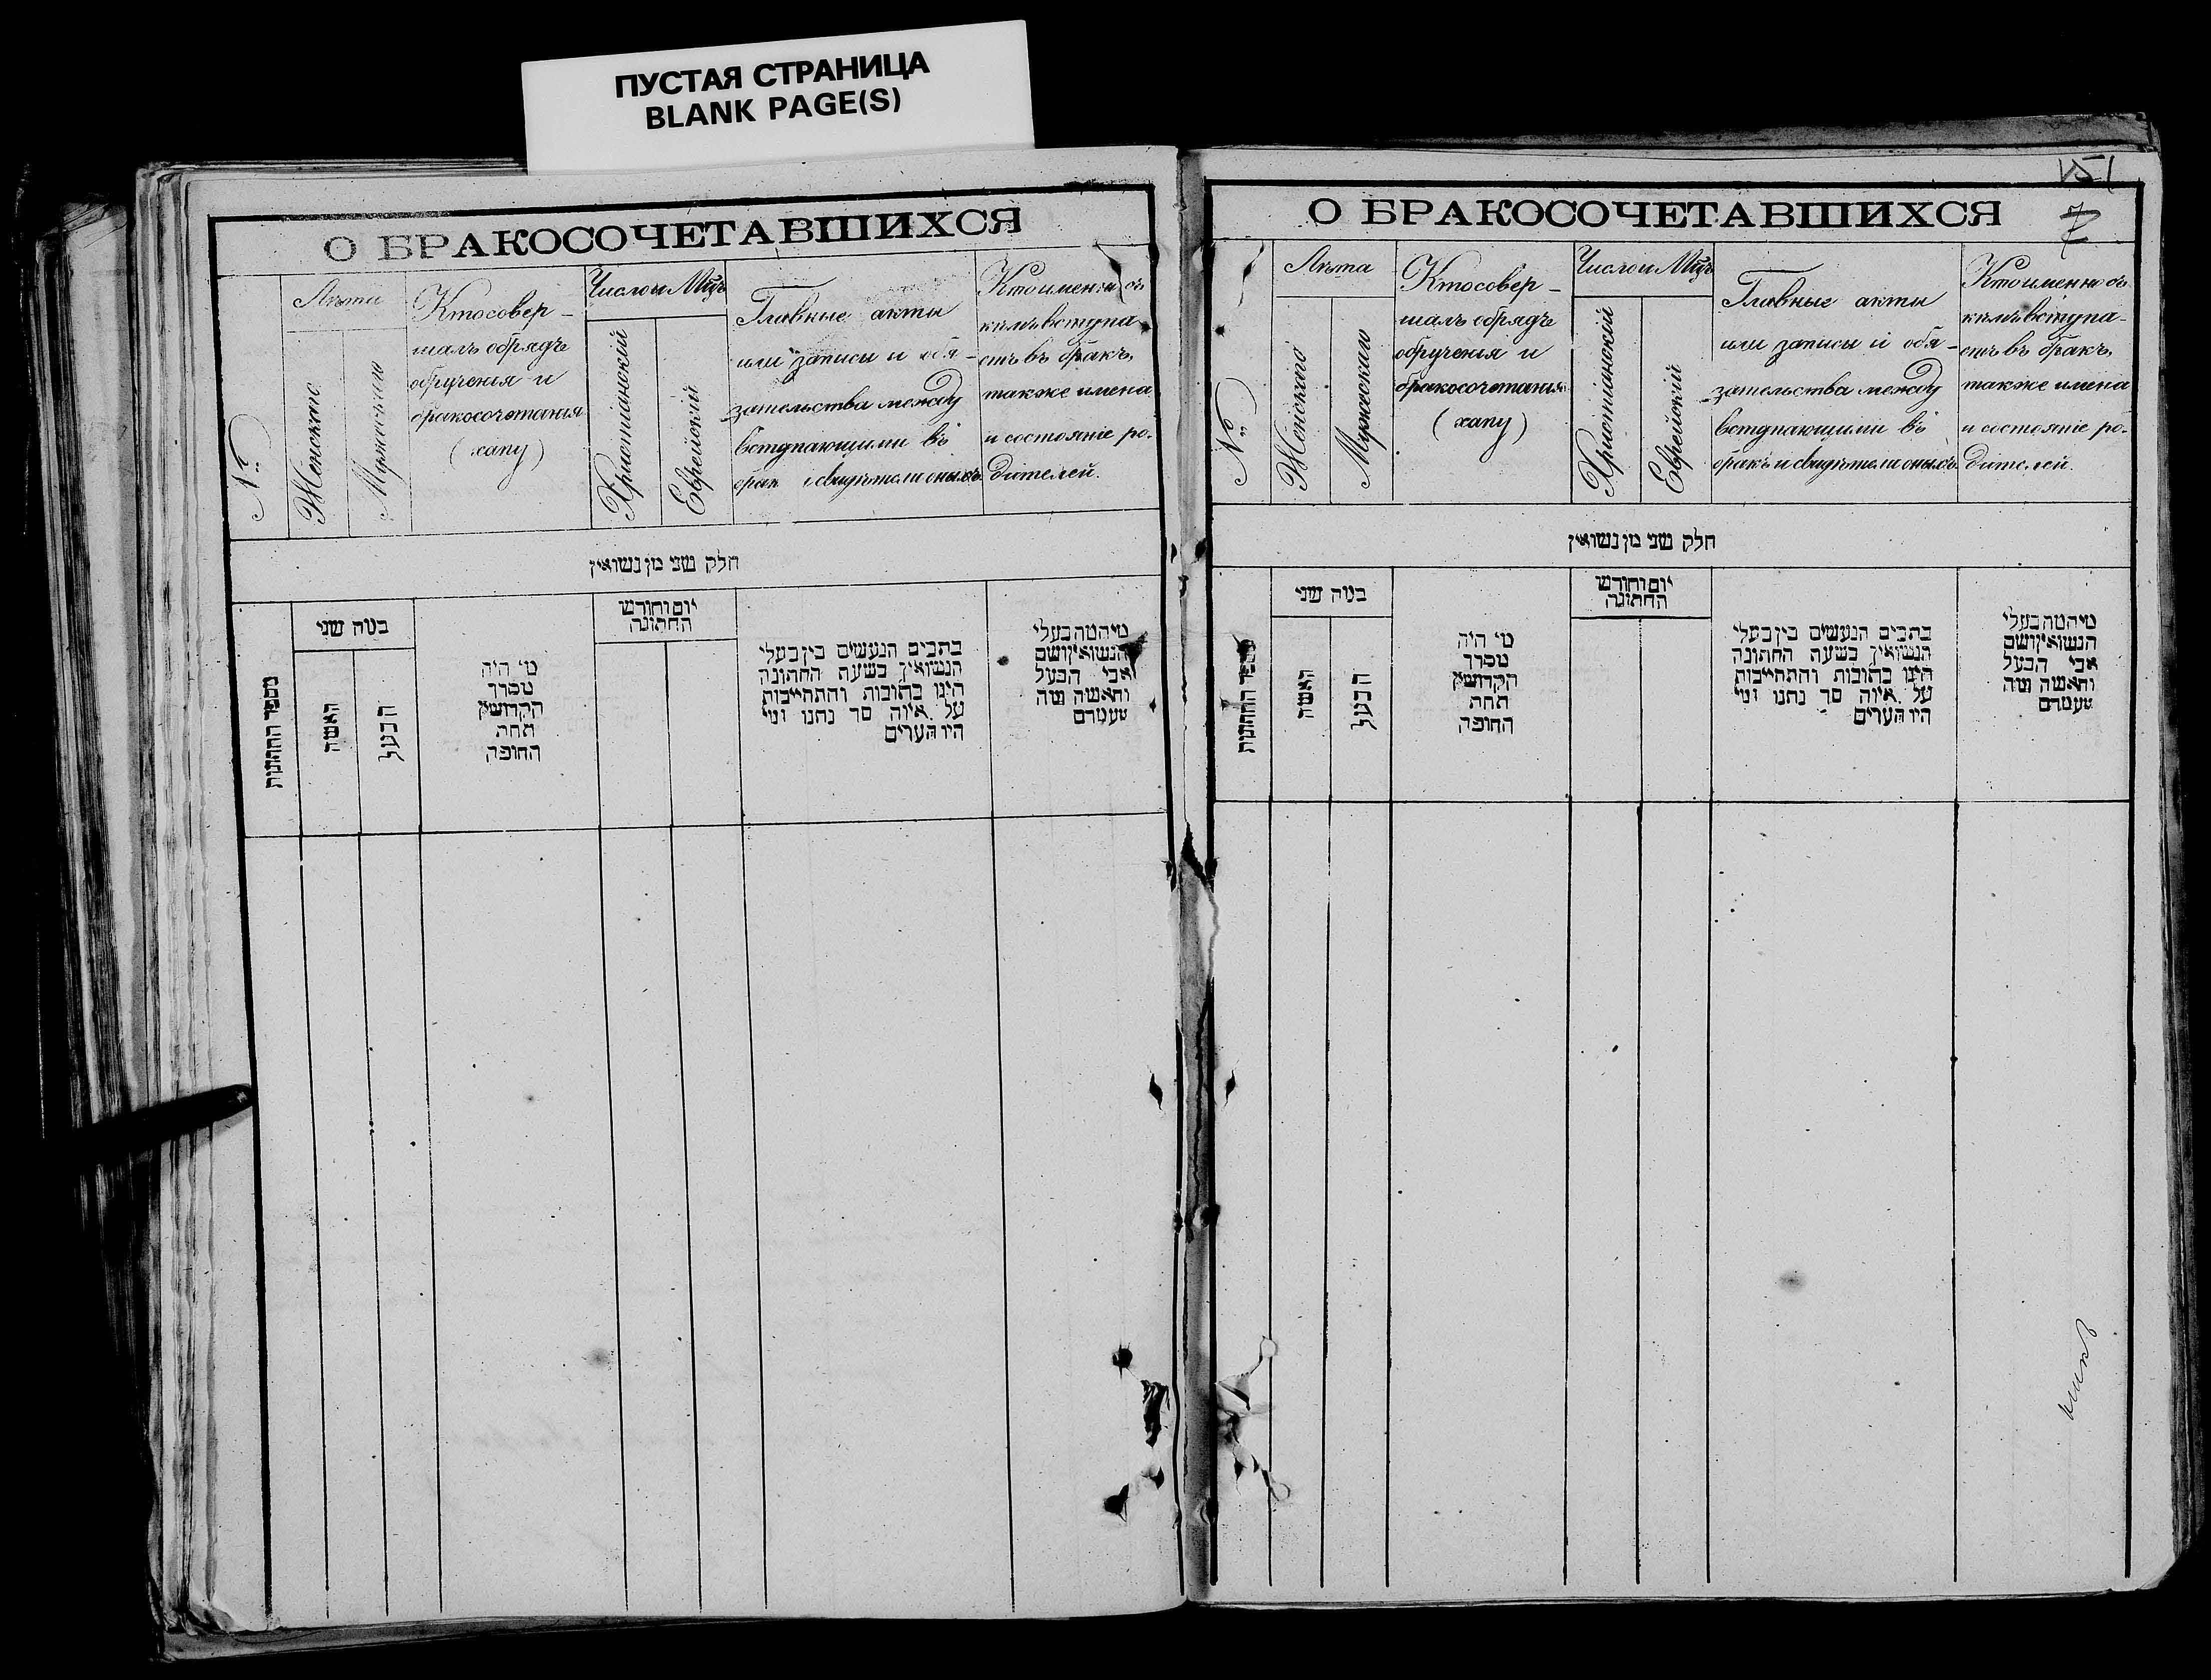 ПУСТАЯ СТРАНИЦА
BLANK PAGE(S)
О БРАКОСОЧЕТАВШИХСЯ
№
Лѣта
Женскаго
Мужескаго
Кто совер-
шалъ обрядъ
обрученія и
бракосочетанія
(хапу)
Число и Мцъ
Христіанскій
Еврейскій
Главные акты
или записи и обя-
зательства между
вступающими въ
брак и свидѣтели оныхъ
Кто именно съ
кѣмъ вступа
етъ въ бракъ,
также имена
и состояніе ро-
дителей.
חלק שני מן נשואין
מספר החתונות
במה שני
האשה
הבעל
מי היה
מסדר
הקדושין
תחת
החופה
יום וחודש
החתונה
כתבים הנעשים בין בעלי
הנשואין בשעת החתונה
היינו כתובות והתחייבות
על איזה סך נתנו ומי
היו העדים
מי המה בעלי
הנשואין ושם
אבי הבעל
והאשה ומה
מעמדם
151
7
О БРАКОСОЧЕТАВШИХСЯ
№
Лѣта
Женскаго
Мужескаго
Кто совер-
шалъ обрядъ
обрученія и
бракосочетанія
(хапу)
Число и Мцъ
Христіанскій
Еврейскій
Главные акты
или записи и обя-
зательства между
вступающими въ
бракъ и свидѣтели оныхъ
Кто именно съ
кѣмъ вступа-
етъ въ бракъ,
также имена
и состояніе ро-
дителей.
חלק שני מן נשואין
מספר החתונות
במה שני
האשה
הבעל
מי היה
מסדר
הקדושין
תחת
החופה
יום וחודש
החתונה
כתבים הנעשים בין בעלי
הנשואין בשעת החתונה
היינו כתובות והתחייבות
על איזה סך נתנו ומי
היו העדים
מי המה בעלי
הנשואין ושם
אבי הבעל
והאשה ומה
מעמדם